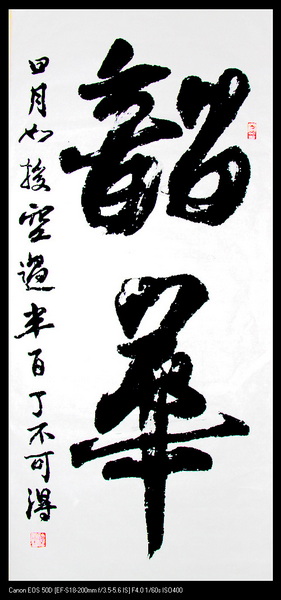 韶華
日月如梭空過半百了不可得
Canon EOS 50D [EF-S18-200mm f/3.5-5.6 IS] F4.0 1/60s ISO400